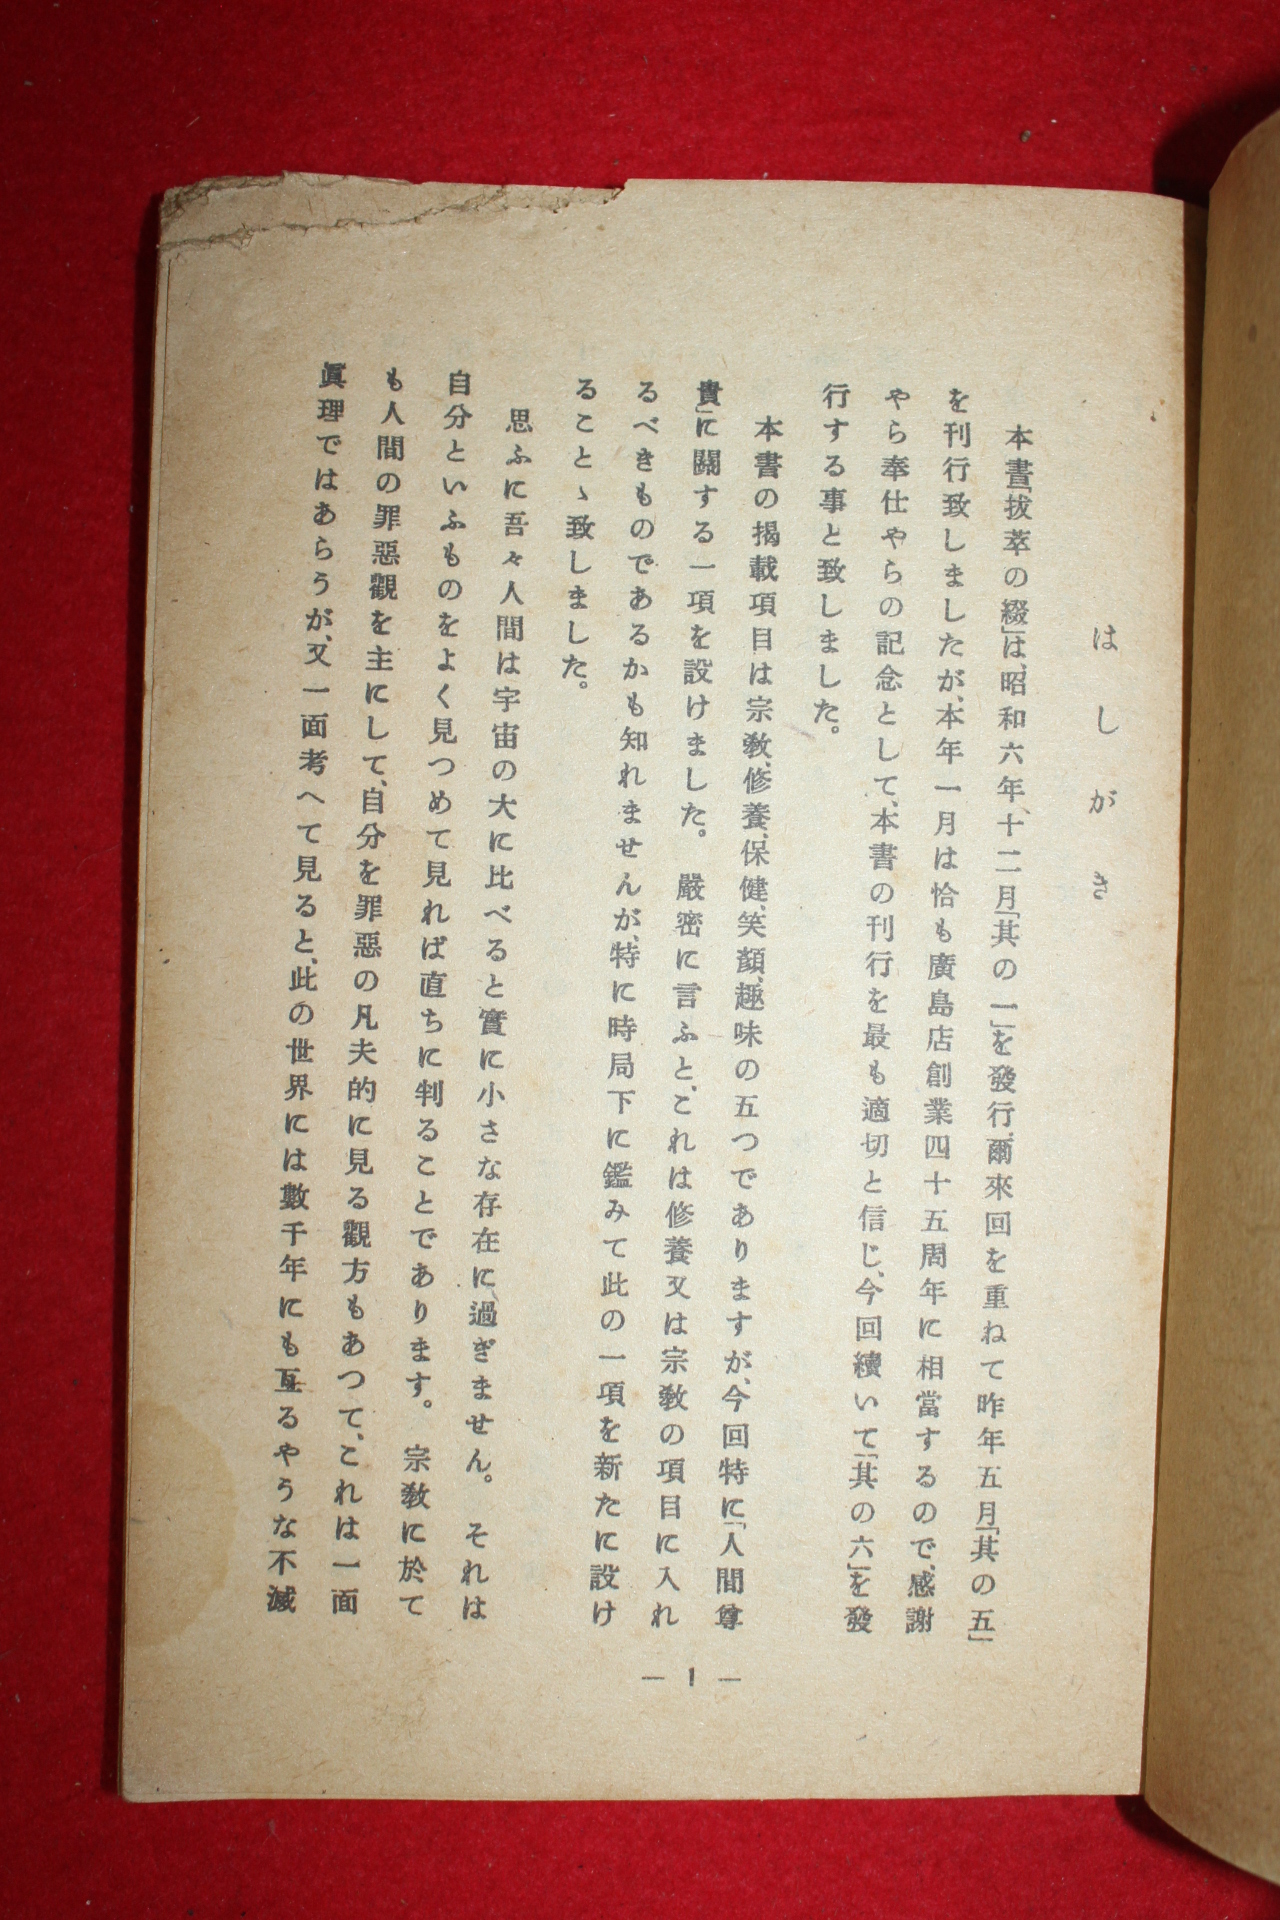 はしがき
本書「拔萃の綴」は、昭和六年、十二月「其の一」を發行、爾來回を重ねて昨年五月「其の五」
を刊行致しましたが、本年一月は恰も廣島店創業四十五周年に相當するので、感謝
やら奉仕やらの記念として、本書の刊行を最も適切と信じ、今回續いて「其の六」を發
行する事と致しました。
本書の揭載項目は宗敎、修養、保健、笑顏、趣味の五つでありますが、今回特に「人間尊
貴」に關する一項を設けました。嚴密に言ふと、これは修養又は宗敎の項目に入れ
るべきものであるかも知れませんが、特に時局下に鑑みて此の一項を新たに設け
ることゝ致しました。
思ふに吾々人間は宇宙の大に比べると實に小さな存在に過ぎません。それは
自分といふものをよく見つめて見れば直ちに判ることであります。宗敎に於て
も人間の罪惡觀を主にして、自分を罪惡の凡夫的に見る觀方もあつて、これは一面
眞理ではあらうが、又一面考へて見ると、此の世界には數千年にも亙るやうな不滅
— 1 —